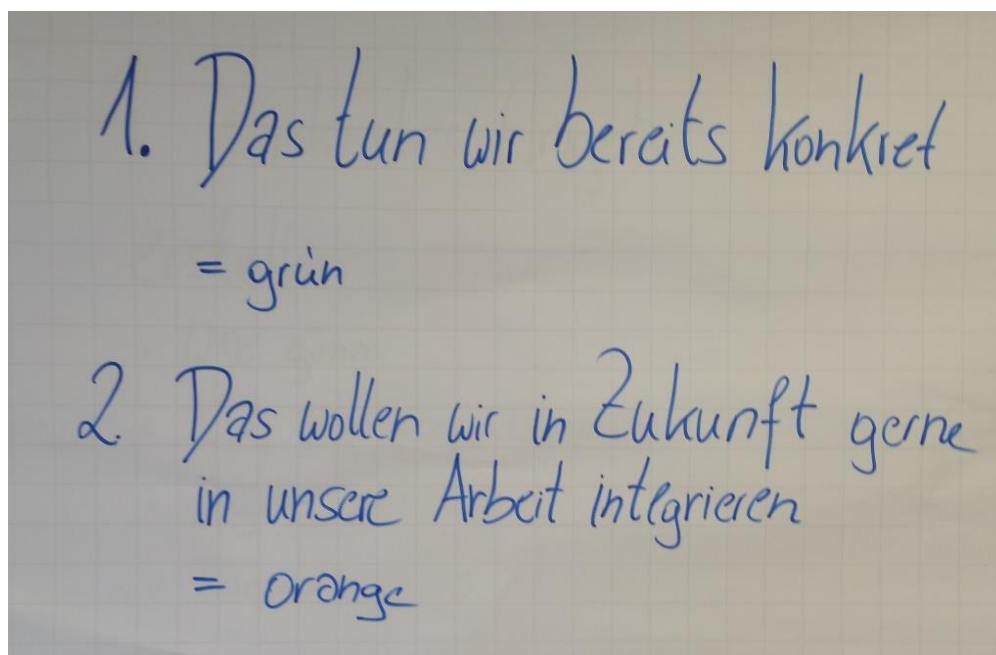 1. Das tun wir bereits konkret
= grün
2. Das wollen wir in Zukunft gerne
in unsere Arbeit integrieren
= orange